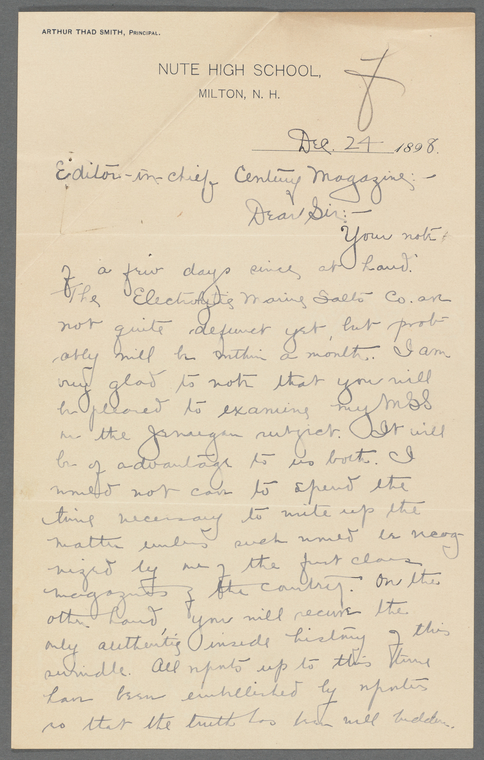 ARTHUR THAD SMITH, PRINCIPAL.
NUTE HIGH SCHOOL,
MILTON, N. H.
Dec. 24 1898.
Editor-in-chief Century Magazine:-
Dear Sir:-
Your note
of a few days since at hand.
The Electrolytic Marine Salts Co. are
not quite defunct yet, but prob-
ably will be within a month. I am
very glad to note that you will
be pleased to examine my MSS
on the Jernegan subject. It will
be of advantage to us both. I
would not care to spend the
time necessary to write up the
matter unless such would be recog-
nized by one of the first class
magazines of the country. On the
other hand you will receive the
only authentic inside history of this
swindle. All reports up to this time
have been embellished by reporters
so that the truth has been well hidden.